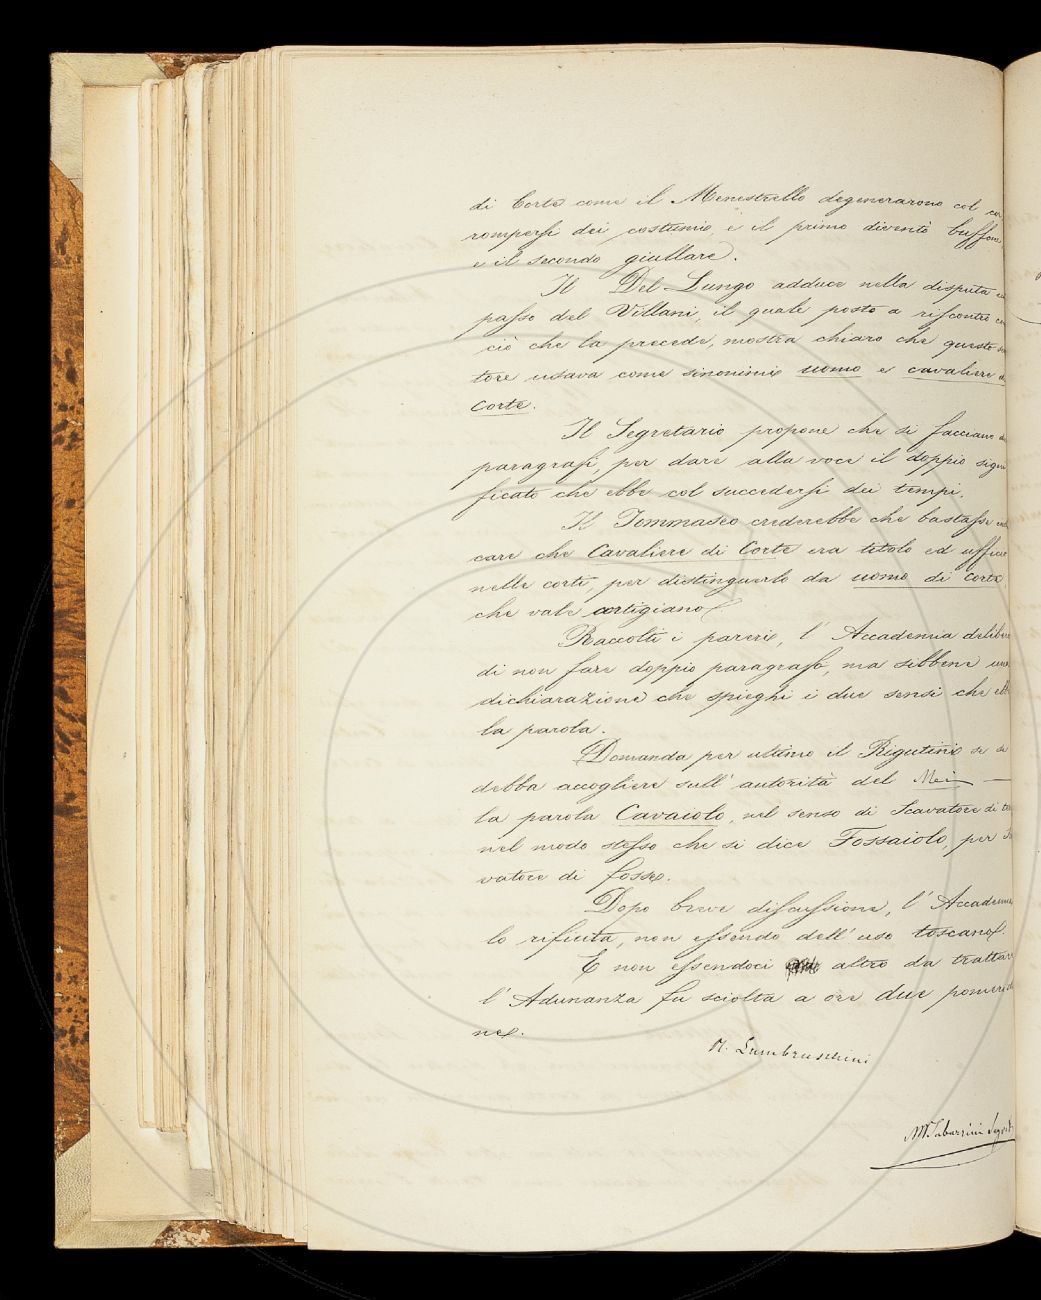 di Corte come il Menestrello degenerarono col cor
rompersi dei costumi, e il primo diventò buffone
e il secondo giullare.
Il Del Lungo adduce nella disputa un
passo del Villani, il quale posto a riscontro con
ciò che la precede, mostra chiaro che questo scrit
tore usava come sinonimi uomo e cavaliere di
Corte.
Il Segretario propone che si facciano due
paragrafi, per dare alla voce il doppio signi
ficato che ebbe col succedersi dei tempi.
Il Tommaseo crederebbe che bastasse
care che Cavaliere di Corte era titolo ed ufficio
nelle corti, per distinguerlo da uomo di Corte,
che vale cortigiano.
Raccolti i pareri, l'Accademia delibera
di non fare doppio paragrafo, ma sibbene una
dichiarazione che spieghi i due sensi che ebbe
la parola.
Domanda per ultimo il Rigutini se si
debba accogliere sull'autorità del Mei —
la parola Cavaiolo, nel senso di Scavatore di
nel modo stesso che si dice Fossaiolo, per
vatore di fosse.
Dopo breve discussione, l'Accademia
lo rifiuta, non essendo dell'uso toscano.
E non essendoci altro da trattare
l'Adunanza fu sciolta a ore due pomeridia
ne.
R. Lambruschini
M. Tabarrini Segret